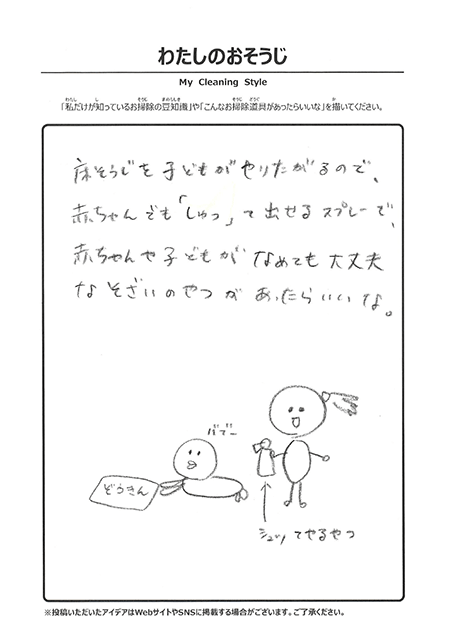 わたしのおそうじ
My Cleaning Style
「私だけが知っているお掃除の豆知識」や「こんなお掃除道具があったらいいな」を描いてください。
床そうじを子どもがやりたがるので、
赤ちゃんでも「しゅっ」て出せるスプレーで、
赤ちゃんや子どもがなめても大丈夫
なそざいのやつがあったらいいな。
バブー
ぞうきん
シュッてやるやつ
※投稿いただいたアイデアはWebサイトやSNSに掲載する場合がございます。ご了承ください。